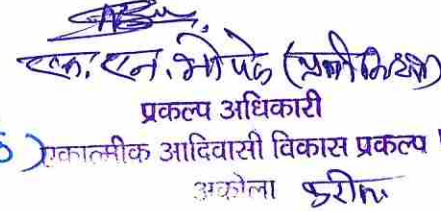 एस. एन. भोपळे
प्रकल्प अधिकारी
एकात्मीक आदिवासी विकास प्रकल्प
अकोला करीता